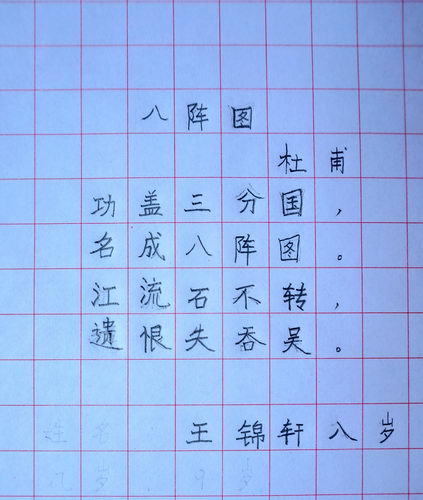 八阵图
杜甫
功盖三分国，
名成八阵图。
江流石不转，
遗恨失吞吴。
姓名
王锦轩八岁
九岁 9岁